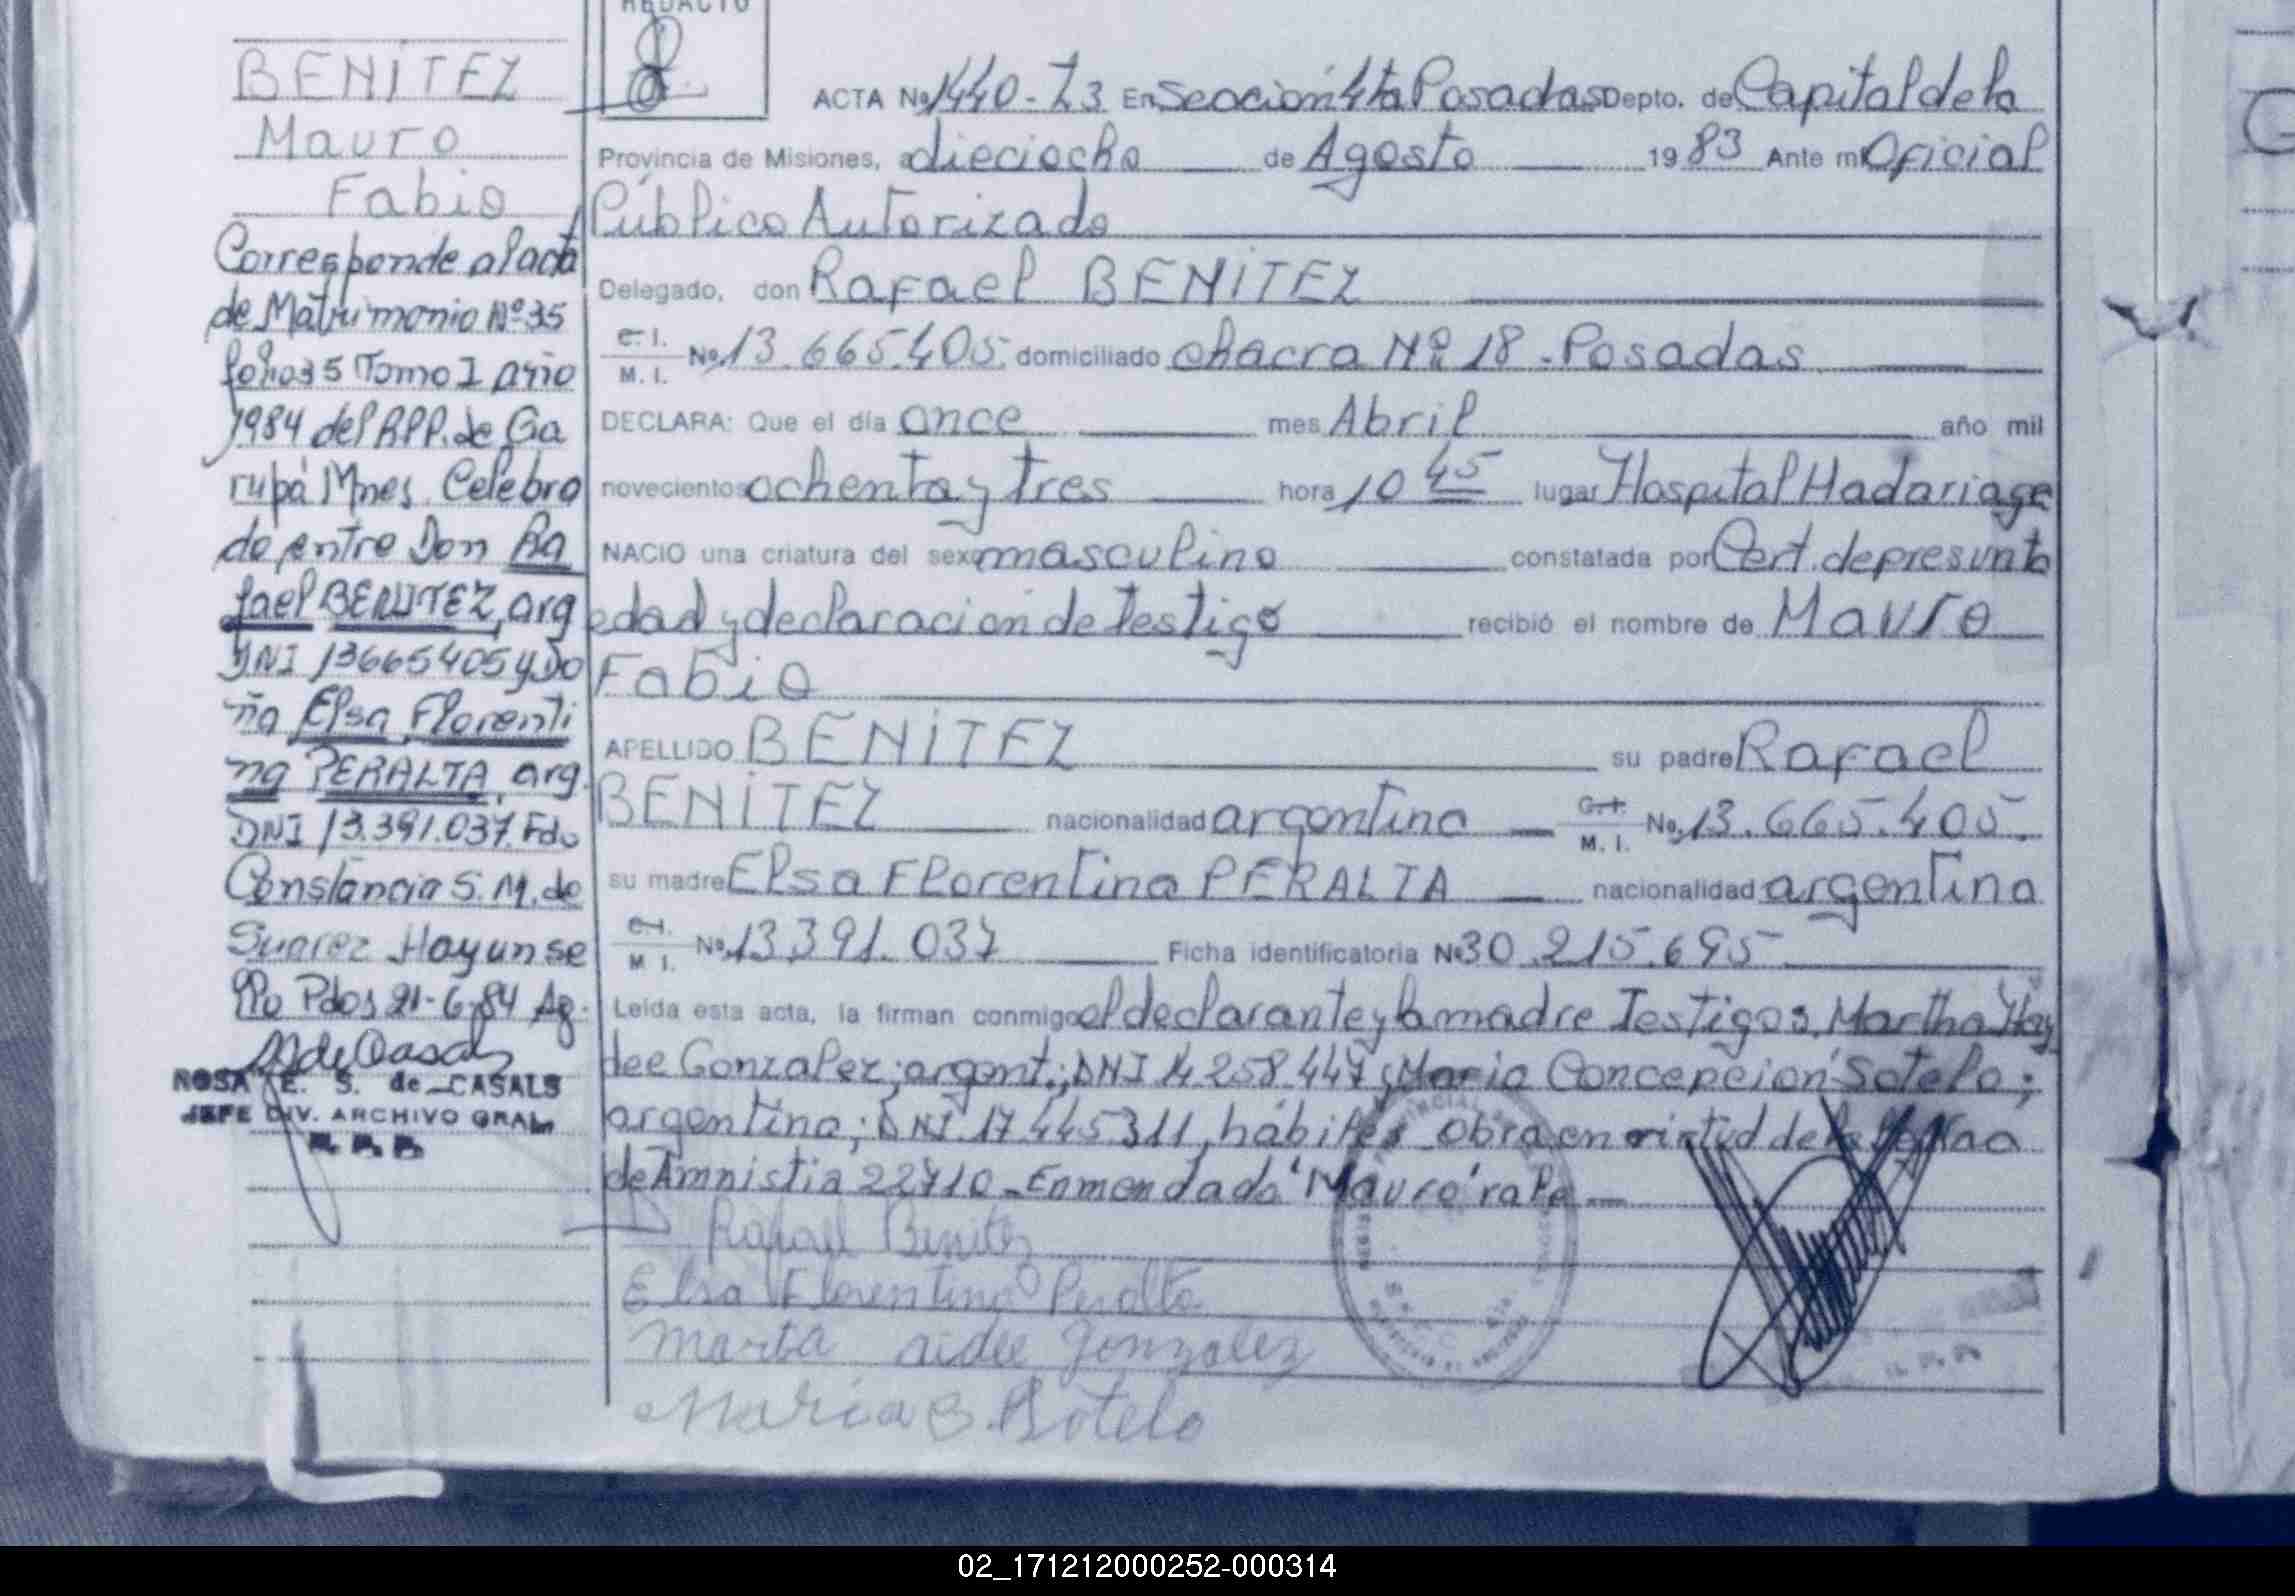 REDACTO
BENITEZ
Mauro
Fabio
Corresponde al acta
de Matrimonio Nº 35
folio 35 Tomo I año
1984 del RPP. de Ga
rupá Mnes. Celebra
do entre Don Ra
fael BENITEZ, arg
DNI 13665405 y Do
ña Elsa Florenti
na PERALTA, arg.
DNI 13.391.037. Fdo
Constancia S. M. de
Suarez Hay un se
llo Pdas 21-6-84
ROSA E. S. de CASALS
JEFE DIV. ARCHIVO GRAL
R. P. P.
ACTA No 1440-T3 En Seccion 4ta Posadas Depto. de Capital de la
Provincia de Misiones, a dieciocho de Agosto 1983 Ante mi Oficial
Público Autorizado
Delegado, don Rafael BENITEZ
C. I. M. I. No. 13.665.405. domiciliado chacra Nº 18 - Posadas
DECLARA: Que el día once mes Abril año mil
novecientos ochenta y tres hora 10 45 lugar Hospital Madariaga
NACIO una criatura del sexo masculino constatada por Cert. de presunta
edad y declaracion de testigo recibió el nombre de Mauro
Fabio
APELLIDO BENITEZ su padre Rafael
BENITEZ nacionalidad argentina C. I. M. I. No. 13.665.405.
su madre Elsa Florentina PERALTA nacionalidad argentina
C. I. M. I. No. 13.391.037 Ficha identificatoria No 30.215.695
Leída esta acta, la firman conmigo el declarante y la madre Testigos. Martha Hay
dee Gonzalez; argent.; DNI 14.258.447 y Maria Concepcion Sotelo;
argentina; DNI. 17.445311, hábiles obra en virtud de la
de Amnistia 22710 - Enmendado "Mauro" vale
Rafael Benitez
Elsa Florentina Peralta
Marta aidee Gonzalez
Maria C. Sotelo
02_171212000252-000314